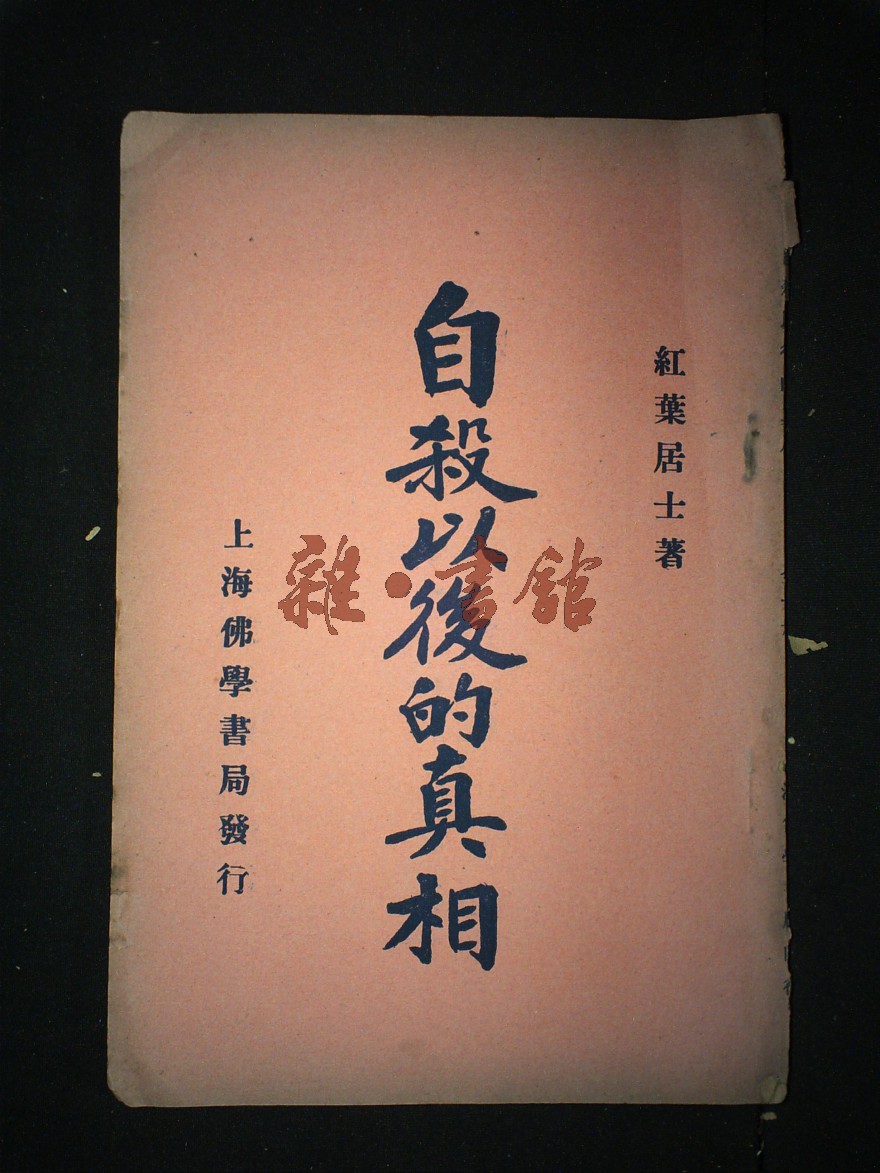 紅葉居士著
自殺以後的真相
上海佛學書局發行
雜·書館